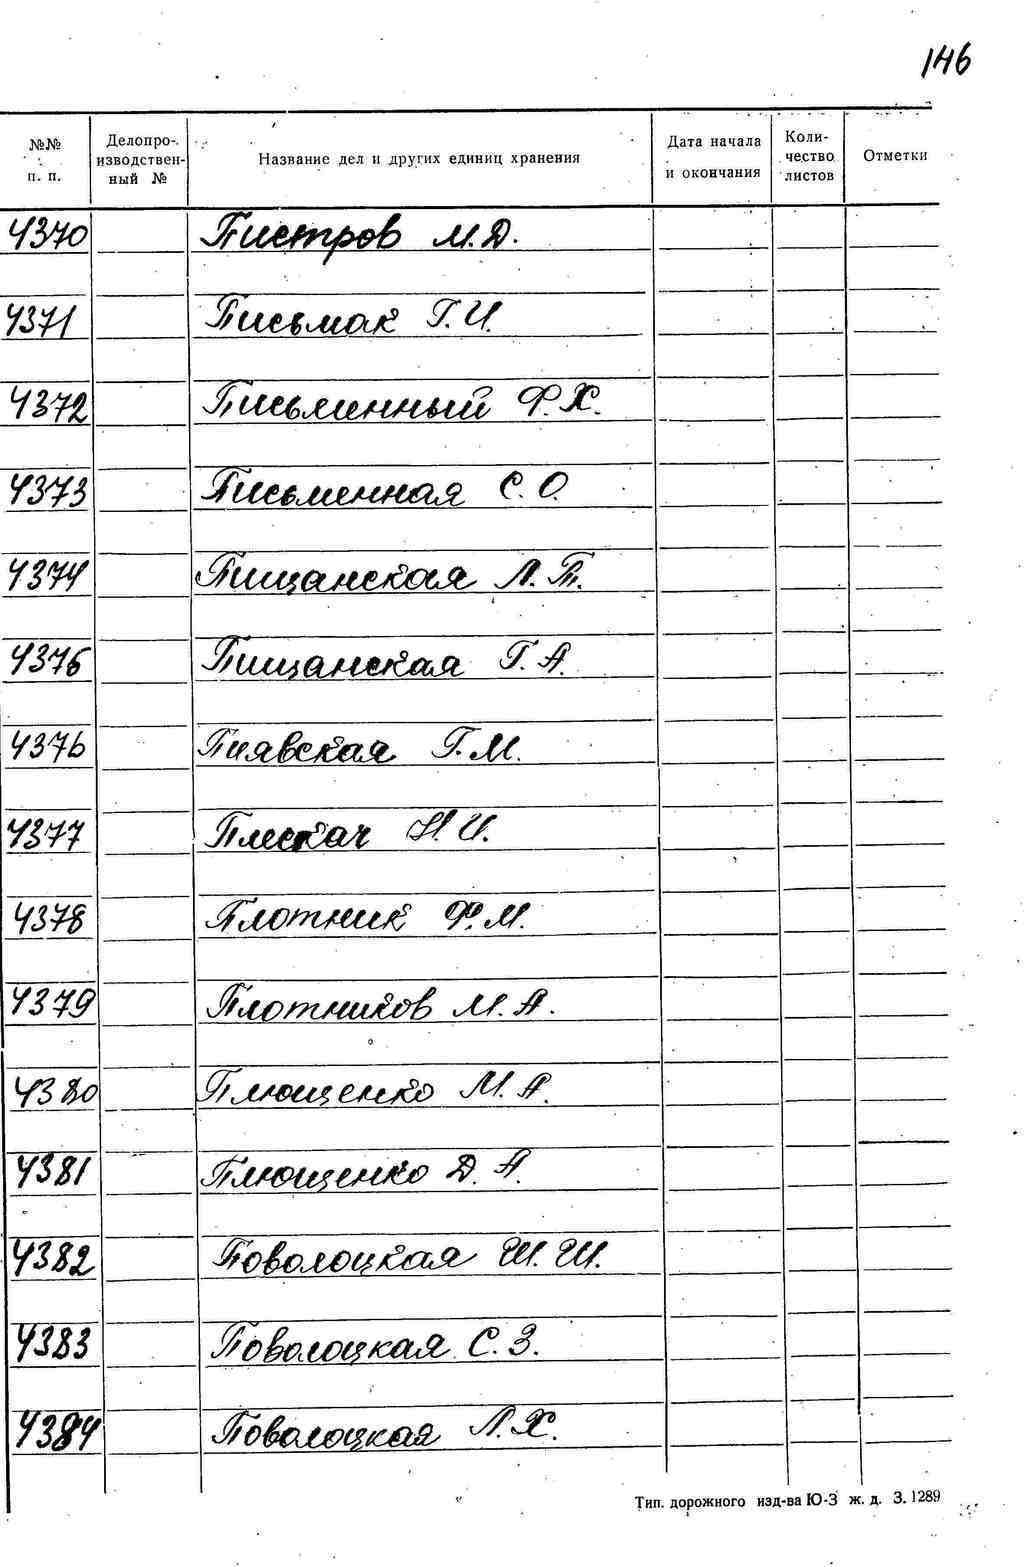 146
№№ п. п. Делопроизводственный № Название дел и других единиц хранения Дата начала и окончания Количество листов Отметки
4370 Пистров М.Д.
4371 Письмак Г.И.
4372 Письменный Ф.Х.
4373 Письменная С.О.
4374 Пищанская Л.П.
4375 Пищанская Г.А.
4376 Пиявская Г.М.
4377 Плескач Н.И.
4378 Плотник Ф.М.
4379 Плотников М.А.
4380 Плющенко М.А.
4381 Плющенко Д.А.
4382 Поволоцкая Ш.Ш.
4383 Поволоцкая С.З.
4384 Поволоцкая Л.Х.
Тип. дорожного изд-ва Ю-З ж. д. З. 1289